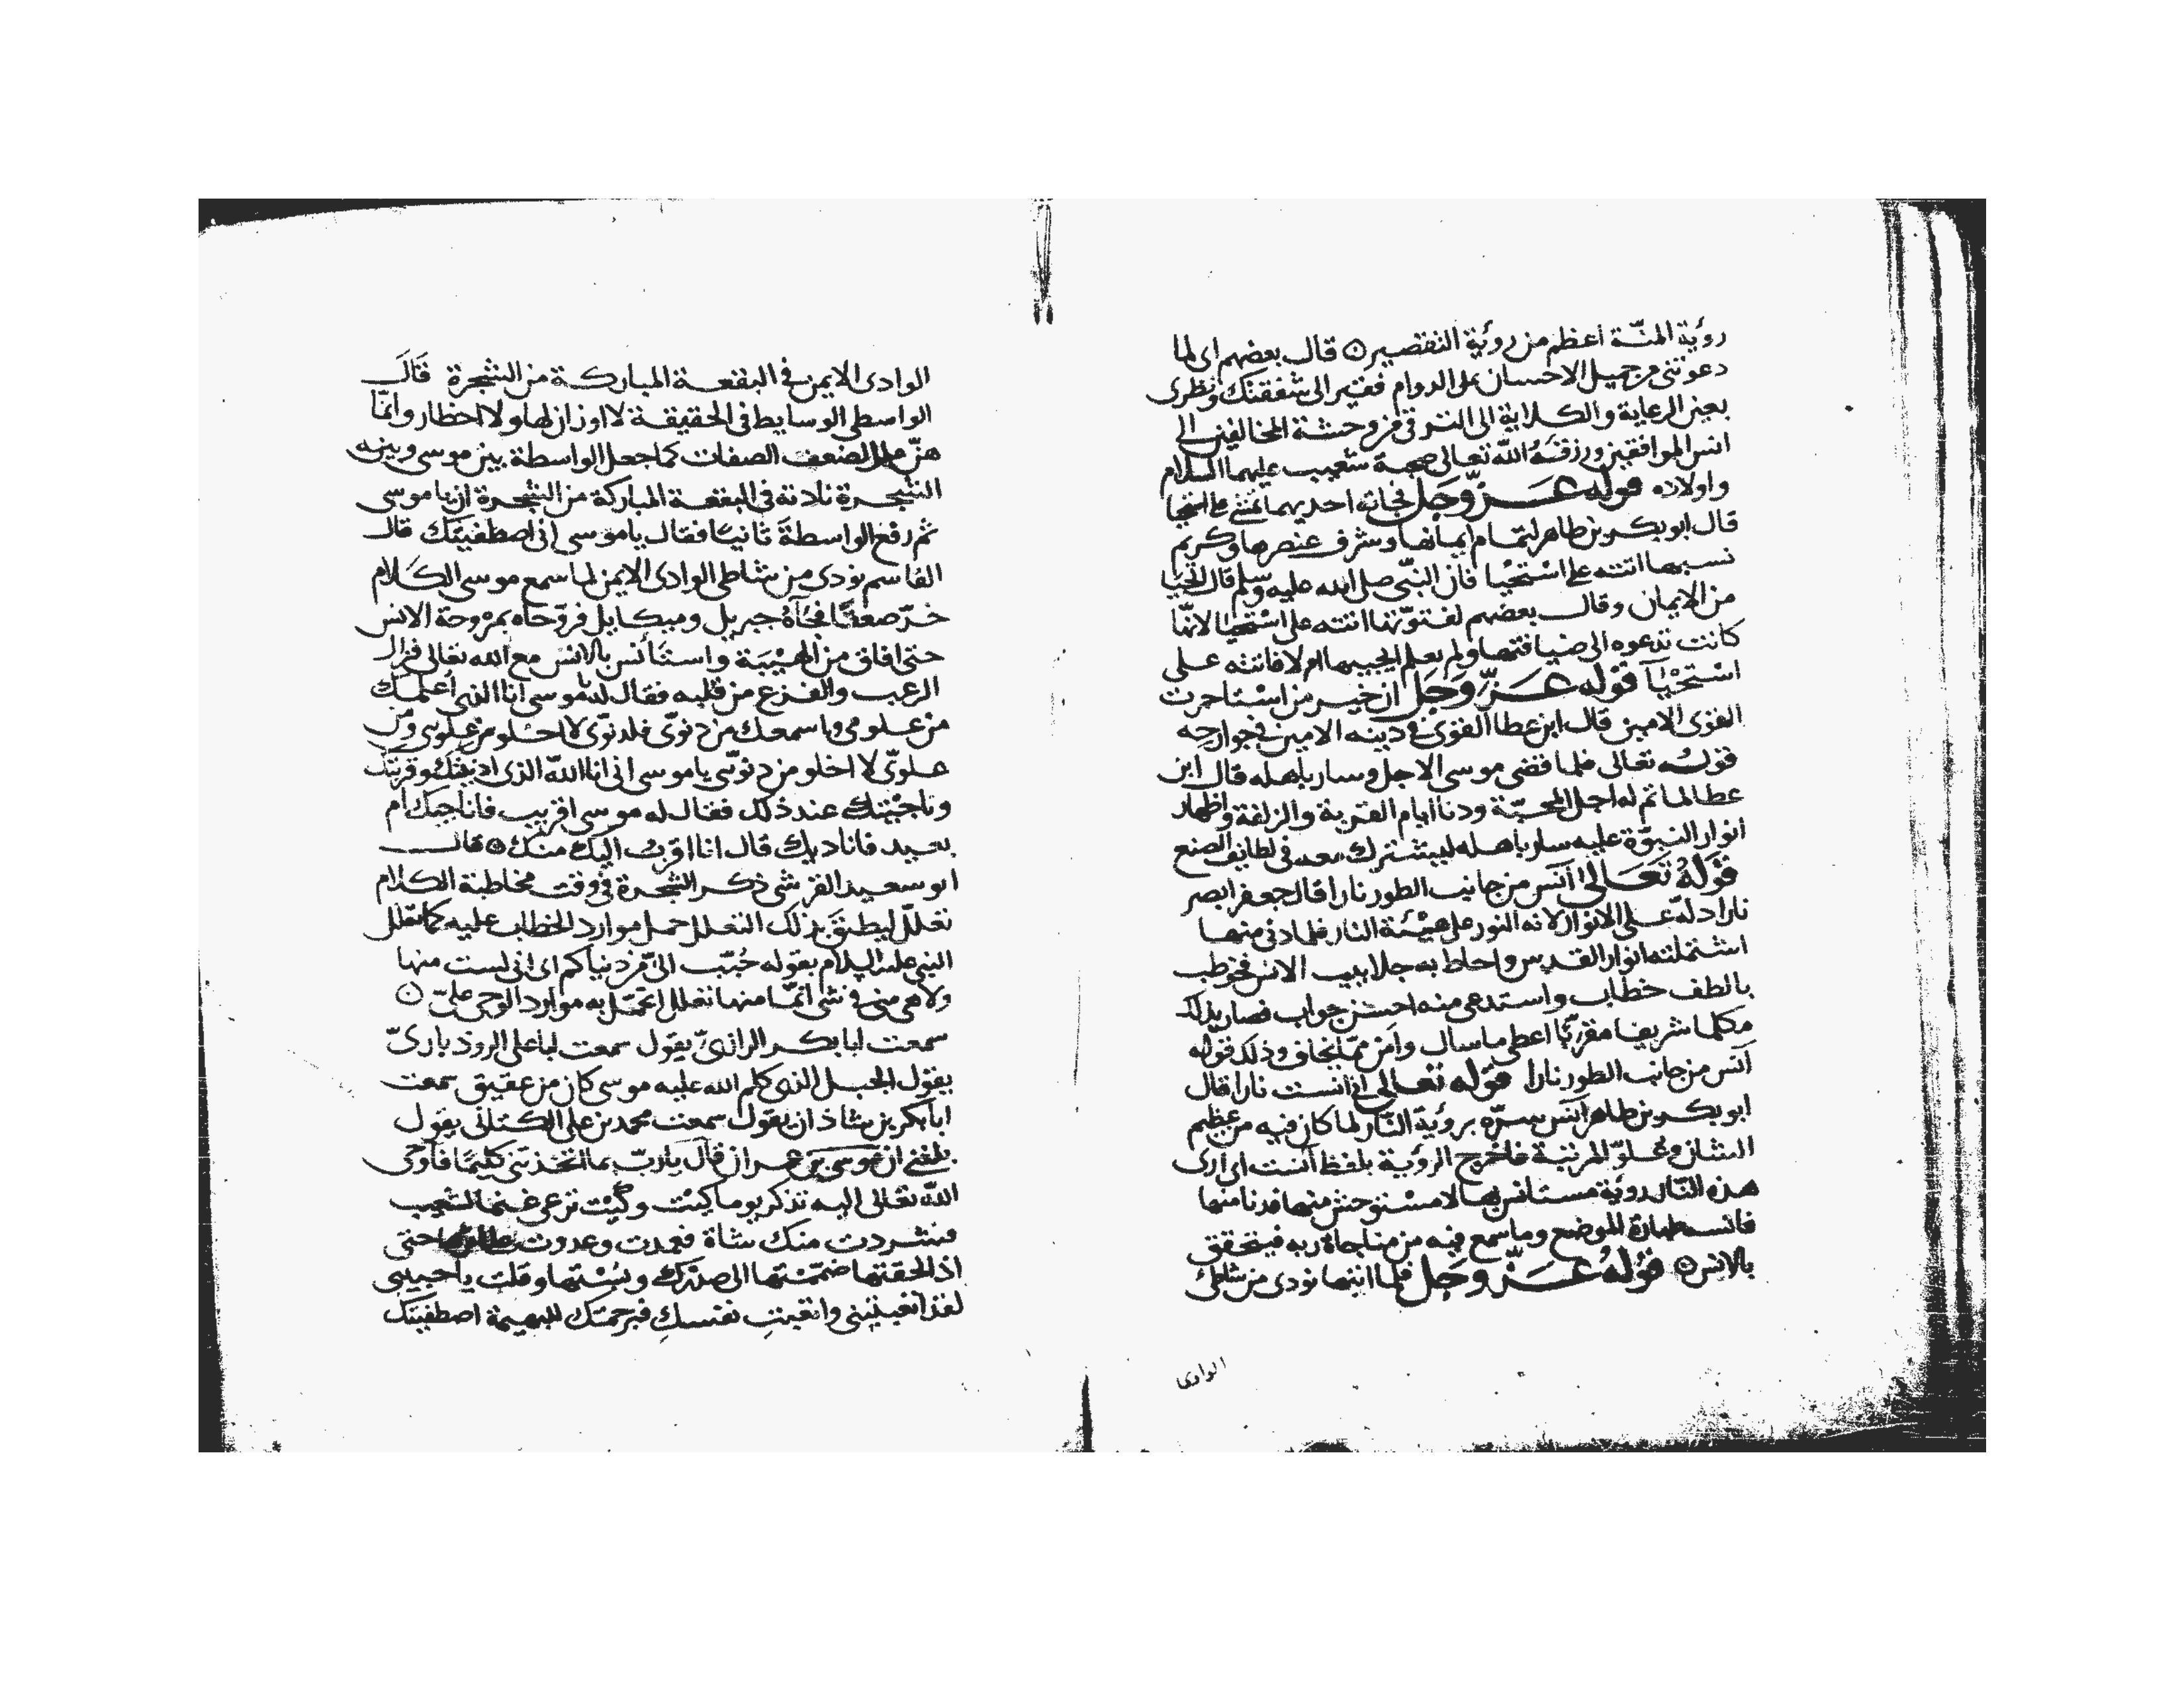 رؤية المنّة اعظم من رؤية التقصير ۞ قال بعضهم اى لما
دعوتنى من جميل الاحسان على الدوام فقير الى شفقتك ونظرى
بعين الرعاية والكلاية الى الترقى من وحشة المخالفين الى
انس الموافقين ورزقه الله تعالى صحبة شعيب عليهما السلام
واولاده قوله عـزّ وجل فجاته احديهما تمشى على استحيا
قال ابو بكر بن طاهر لتمام ايمانها وشرف عنصرها وكريم
نسبها اتته على استحيا فان النبى صلى الله عليه وسلم قال الحيا
من الايمان وقال بعضهم لفتوّتها اتته على استحيا لانّها
كانت تدعوه الى ضيافتها ولم تعلم ايجيبها ام لا فاتته على
استحيآ قوله عـزّ وجل ان خير من استاجرت
القوى الامين قال ابن عطا القوى فى دينه الامين فى جوارحه
قوله تعالى فلما قضى موسى الاجل وسار باهله قال ابن
عطا لما تم له اجل المحبّة ودنا ايام القربة والزلفة واظهار
انوار النبوّة عليه سار باهله ليشترك معه فى لطايف الصنع
قوله تعالى آنس من جانب الطور نارا قال جعفر ابصر
نارا دلّه على الانوار لانه النور على هيئة النار فلما دنى منها
اشتملته انوار القدس واحاط به جلابيب الانس فخوطب
بالطف خطاب واستدعى منه احسن جواب فصار بذلك
مكلما شريفا مقرّبا اعطى ما سال وامن ممّا يخاف وذلك قوله
آنس من جانب الطور نارا قوله تعالى انى انست نارا قال
ابو بكر بن طاهر آنس سرّه برؤية النّار لما كان فيه من عظيم
الشان وعلوّ المرتبة فاخرج الرؤية بلفظ آنست اى ارى
هذه النّار رؤية مستانس بها لا مستوحش منها فدنا منها
فانس طهارة الموضع وما سمع فيه من مناجاة ربه فتحقق
بالانس ۞ قوله عـزّ وجل فلما اتيها نودى من شاطئ
الوادى
الوادى الايمن فى البقعة المباركة من الشجرة قَالَ
الواسطى الوسايط فى الحقيقة لا اوزان لها ولا اخطار وانّما
هنّ علل لضعف الصفات كما جعل الواسطة بين موسى وبينه
الشجرة نادته فى البقعة المباركة من الشجرة ان يا موسى
ثم رفع الواسطةَ ثانيًا فقال يا موسى انى اصطفيتك قال
القاسم نودى من شاطى الوادى الايمن لما سمع موسى الكلام
خـرّ صعقًا فجآءه جبريل وميكايل فروّحاه بمروحة الانس
حتى افاق من الهيبة واستأنس بالانس مع الله تعالى فزال
الرعب والفزع من قلبه فقال له يا موسى انا الذى اعلمك
من علومى واسمعك من دنوّى فلدنوّى لا اخلو من علوّى ومن
علوّى لا اخلو من دنوّى يا موسى انى انا الله الذى ادنيتك وقربتك
وناجيتك عند ذلك فقال له موسى اقريب فاناجيك ام
بعيد فاناديك قال انا اقرب اليك منك ۞ قال
ابو سعيد القرشى ذكر الشجرة فى وقت مخاطبة الكلام
تعلّل ليطيق بذلك التعلل حمل موارد الخطاب عليه كما تعلّل
النبى عليه السلام بقوله حُبّب الىّ من دنياكم اى انى لست منها
ولا هى منى فى شى انّما منها تعلل اتحمّل به موارد الوحى علىّ ۞
سمعت ابا بكر الرازىّ يقول سمعت ابا على الروذبارىّ
يقول الجبل الذى كلم الله عليه موسى كان من عقيق سمعت
ابا بكر بن شاذان يقول سمعت محمد بن على الكتانى يقول
بلغنى ان موسى بن عمران قال يا ربّ بما اتخذتنى كليمًا فاوحى
الله تعالى اليه تذكر يوما كنت وكنت ترعى غنما لشعيب
فشردت منك شاة فعمدت وعدوت حتى
اذ الحقتها ضمّمتها الى صدرك وبُسْتها وقلت يا حبيبى
لقد اتعبتنى واتعبتِ نفسكِ فبرحمتك للبهيمة اصطفيتك